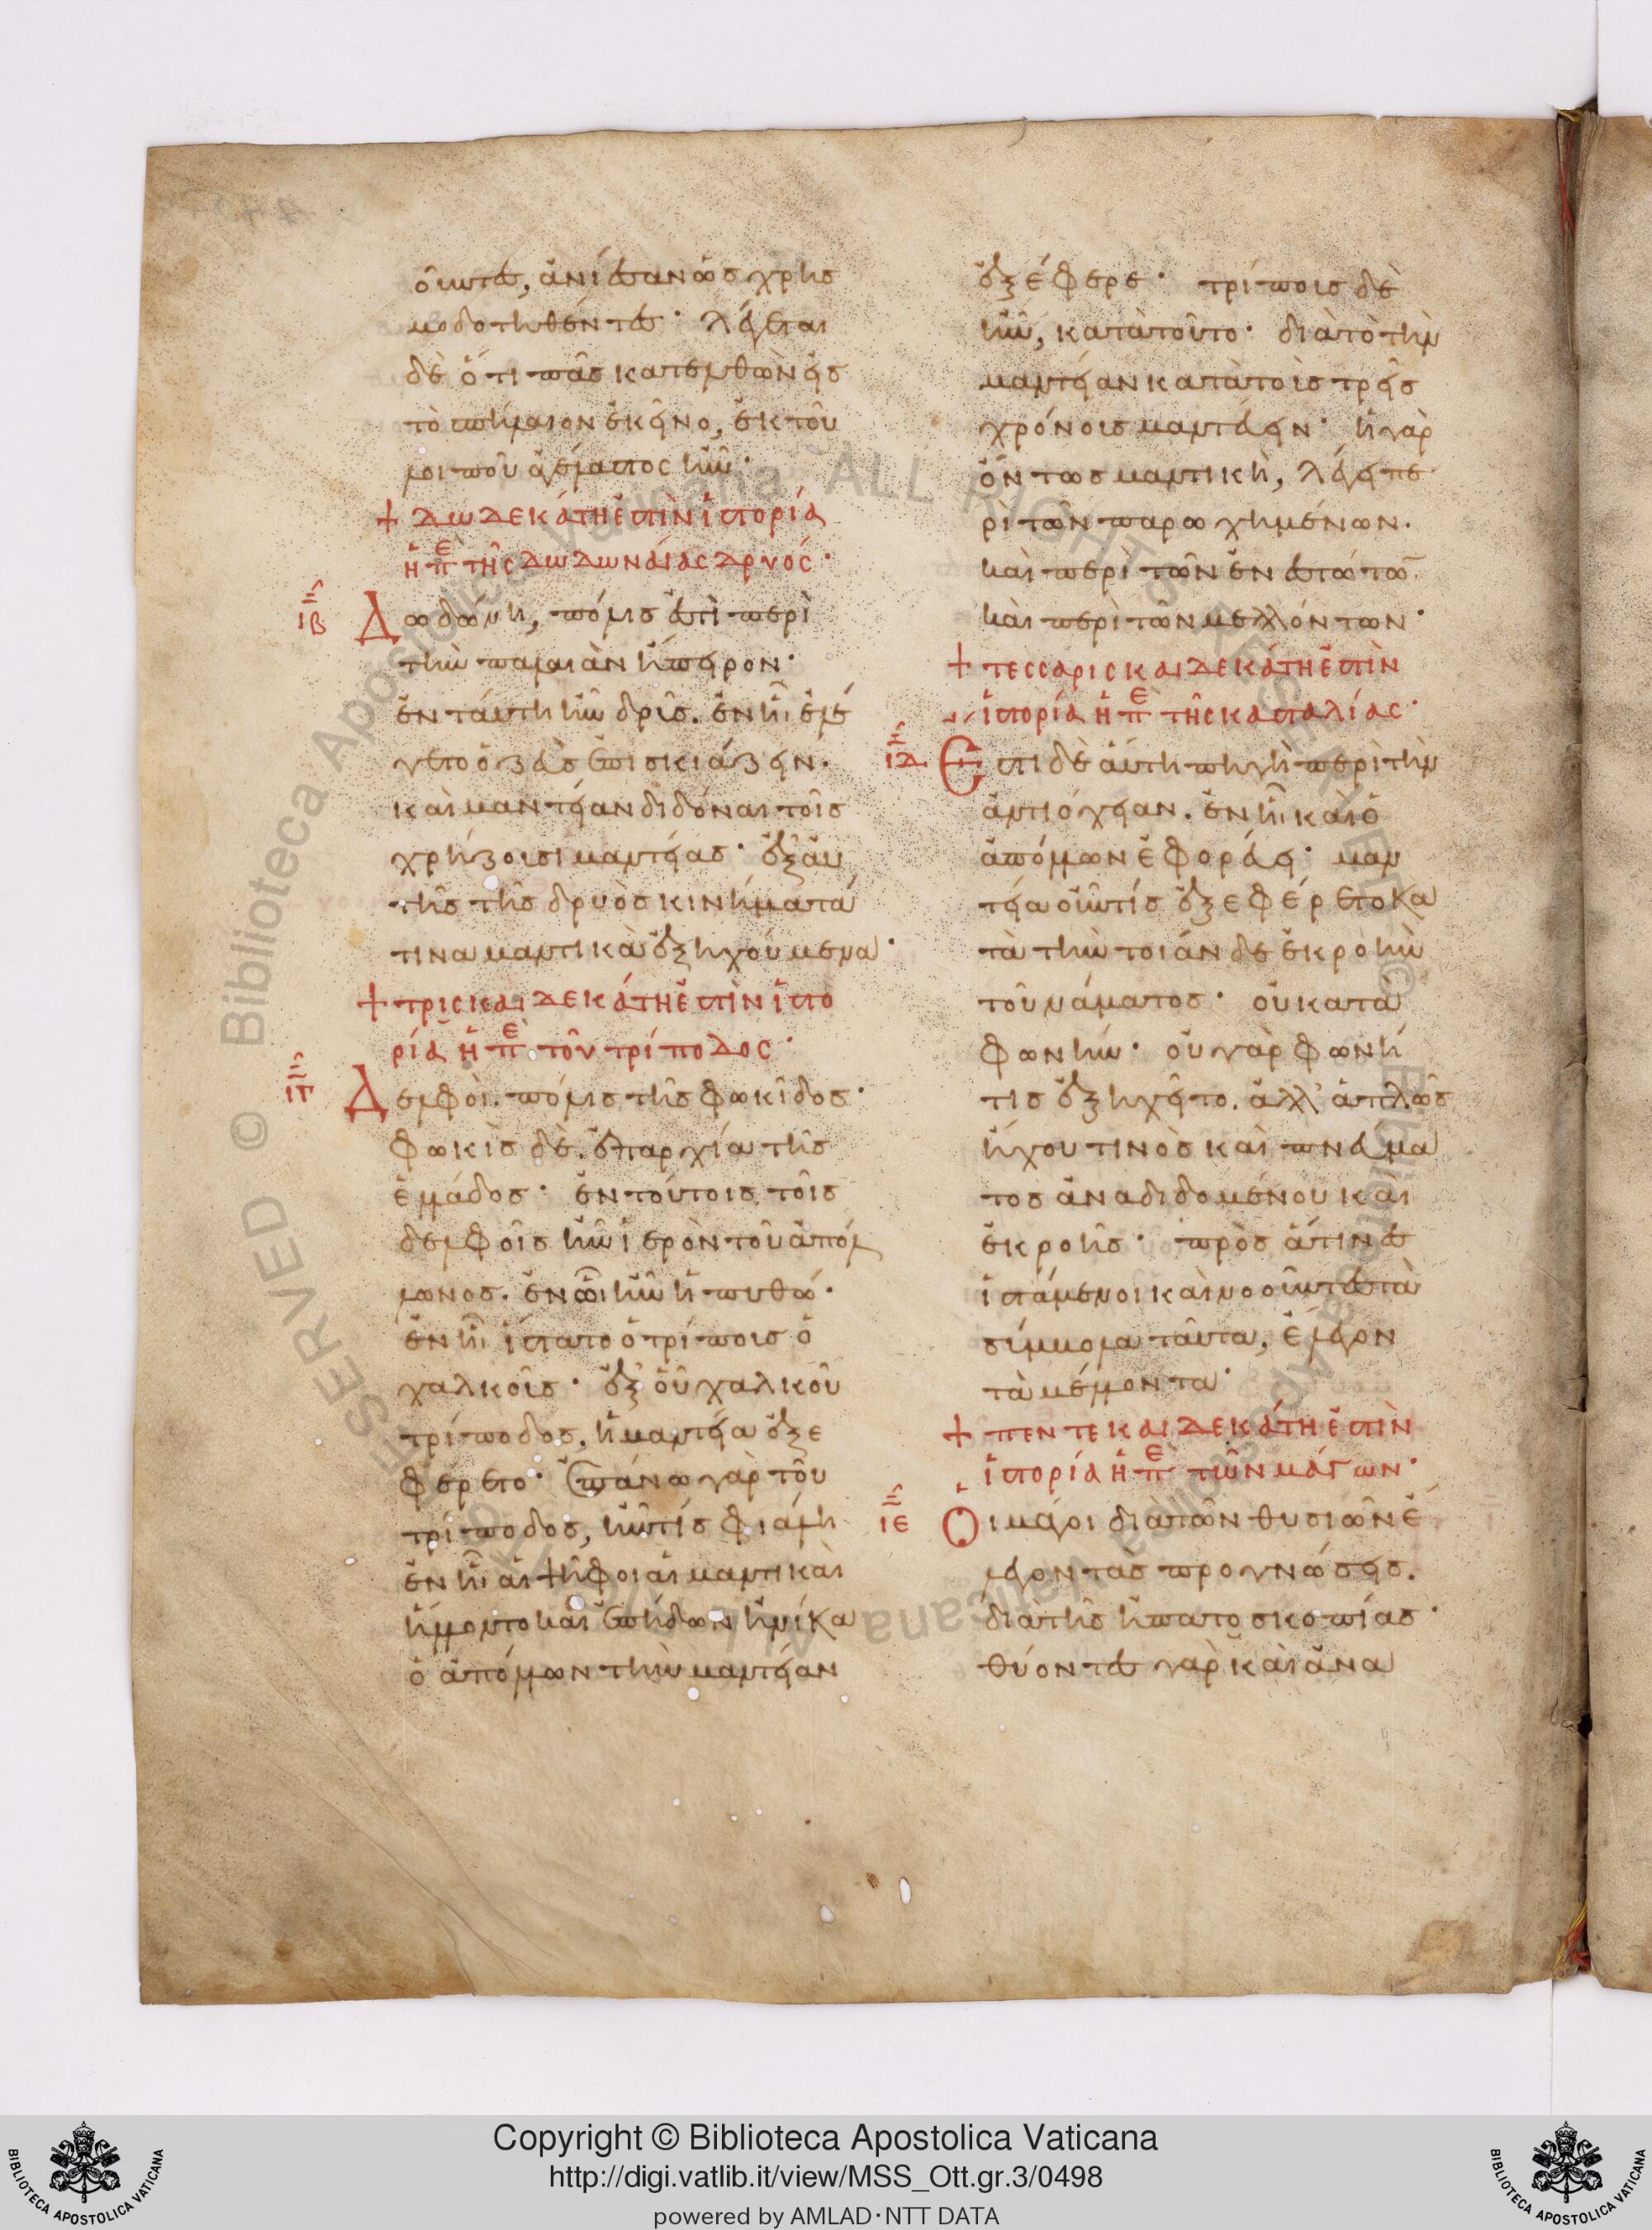 οῖωντο, ἀνίστανως χρης
μοδοτηθέντες· λέγεται
δὲ ὅτι πᾶς κατελθὼν εἰς
τὸ σπήλαιον ἐκεῖνο, ἐκ τοῦ
λοιποῦ ἀγέλαστος ἦν·
+ ΔωΔΕΚάΤΗ ἐστὶν ἱστορία
ἡ πε τῆς ΔωΔωναίας Δρυός·
ιβ Δωδώνη, πόλις ἐστὶ περὶ
τὴν παλαιὰν ἤπειρον·
ἐν ταύτη ἦν δρῦς. ἐν ἧι ἐλέ
γετο ὁ ζεὺς ἐπισκιάζειν.
καὶ μαντείαν διδόναι τοῖς
χρήζουσι μαντείας· ἐξ αὐ
τῆς τῆς δρυὸς κινήματά
τινα μαντικὰ ἐξηχούμενα·
+ τρισκαιΔεκάτη ἐστὶν ἱστο
ρία ἡ πε τοῦ τρίποΔος·
ιγ Δελφοὶ. πόλις τῆς φωκίδος·
φωκὶς δὲ. ἐπαρχία τῆς
ἑλλάδος· ἐν τούτοις τοῖς
δελφοῖς ἦν ἱερὸν τοῦ ἀπόλ
λωνος. ἐν ὧι ἦν ἡ πυθώ·
ἐν ἧι ἵστατο ὁ τρίπους ὁ
χαλκοῦς· ἐξ οὗ χαλκοῦ
τρίποδος, ἡ μαντεία ἐξε
φέρετο· ἐπάνω γὰρ τοῦ
τρίποδος, ἦν τίς φιάλη
ἐν ἧι αἱ ψῆφοι αἱ μαντικαὶ
ἥλλοντο καὶ ἐπήδων ἡνίκα
ὁ ἀπόλλων τὴν μαντείαν
ἐξέφερε· τρίπους δὲ
ἦν, κατὰ τοῦτο· διὰ τὸ τὴν
μαντείαν κατὰ τοὺς τρεῖς
χρόνους μαντεύειν· ἡ γὰρ
ὄντως μαντικὴ, λέγει πε
ρὶ τῶν παρωχημένων.
καὶ περὶ τῶν ἐνεστώτων
καὶ περὶ τῶν μελλόντων·
+ τεσσαρισκαιΔεκάτη ἐστὶν
ἱστορία ἡ πε τῆς κασταλίας·
ιδ Ἔστι δὲ αὕτη πηγὴ περὶ τὴν
ἀντιόχειαν. ἐν ἧι καὶ ὁ
ἀπόλλων ἐφορεύει· μαν
τεία οὖν τίς ἐξεφέρετο κα
τὰ τὴν τοιάνδε ἐκροὴν
τοῦ νάματος· οὐ κατὰ
φωνήν· οὐ γὰρ φωνή
τις ἐξηχεῖτο. ἀλλ' ἁπλῶς
ἤχου τινὸς καὶ πνεύμα
τος ἀναδιδομένου καὶ
ἐκροῆς· πρὸς ἅτινες
ἱστάμενοι καὶ νοοῦντες τὰ
σύμβολα ταῦτα, ἔλεγον
τὰ μέλλοντα·
+ πεντεκαιΔεκάτη ἐστὶν
ἱστορία ἡ πε τῶν μάγων·
ιε Οἱ μάγοι διὰ τῶν θυσιῶν ἔ
λεγον τὰς προγνώσεις.
διὰ τῆς ἡπατοσκοπίας·
θύοντες γὰρ καὶ ἀνα
Copyright © Biblioteca Apostolica Vaticana
http://digi.vatlib.it/view/MSS_Ott.gr.3/0498
powered by AMLAD·NTT DATA